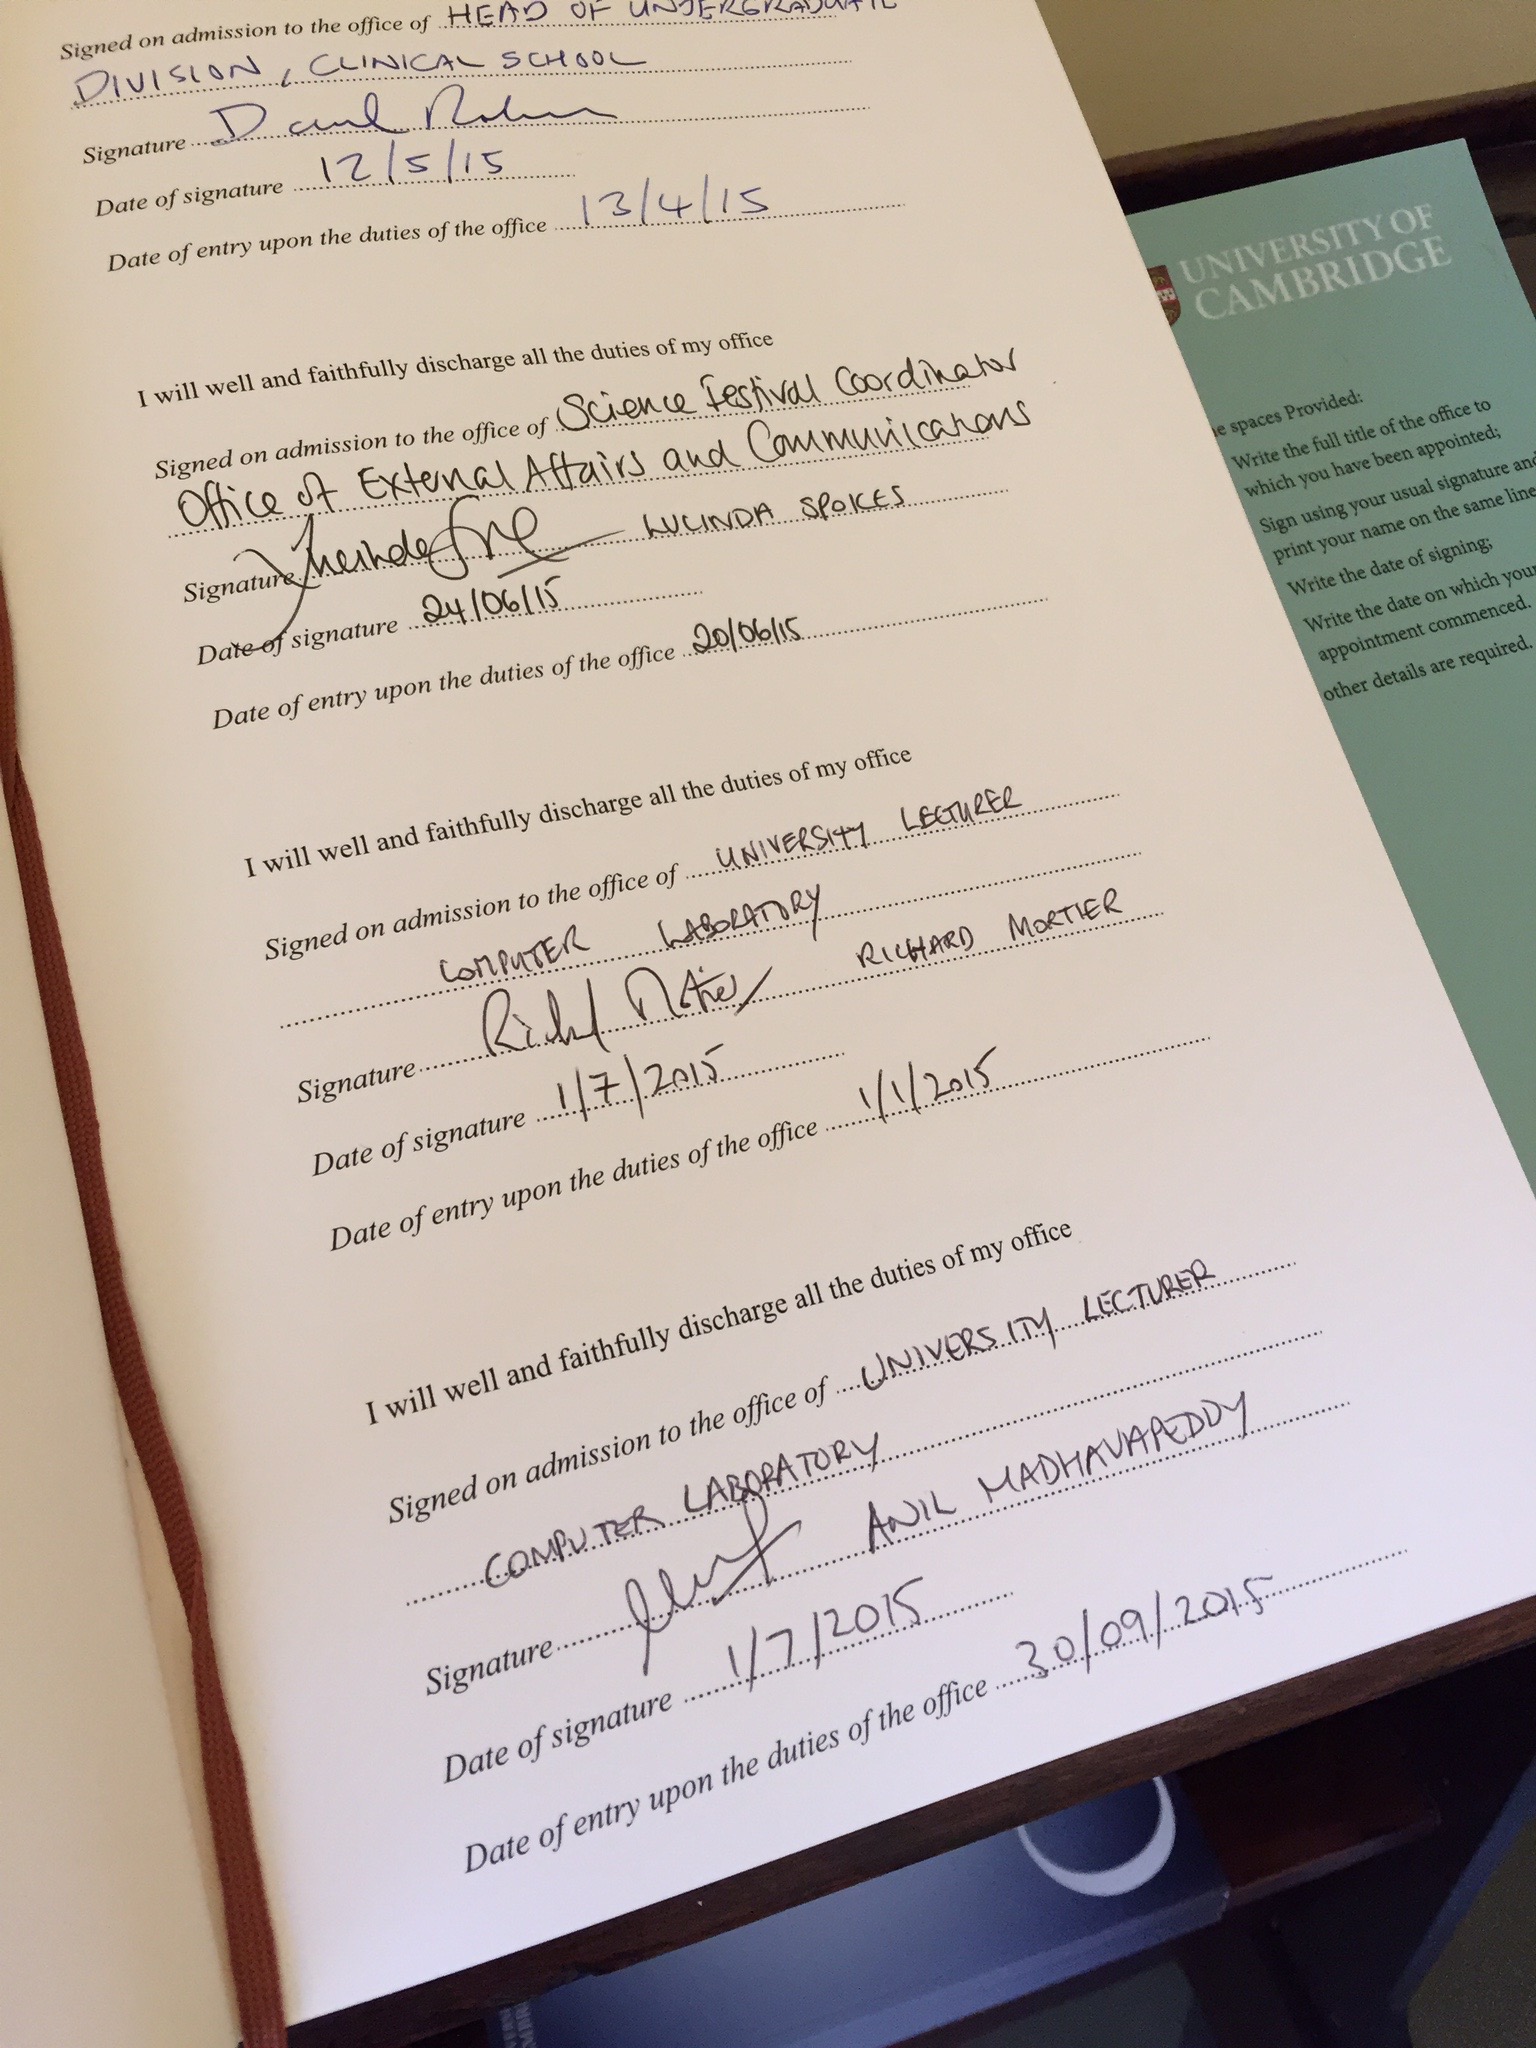 Signed on admission to the office of HEAD OF UNDERGRADUATE
DIVISION, CLINICAL SCHOOL
Signature
Date of signature 12/5/15
Date of entry upon the duties of the office 13/4/15
I will well and faithfully discharge all the duties of my office
Signed on admission to the office of Science Festival Coordinator
Office of External Affairs and Communications
Signature LUCINDA SPOKES
Date of signature 24/06/15
Date of entry upon the duties of the office 20/06/15
I will well and faithfully discharge all the duties of my office
Signed on admission to the office of UNIVERSITY LECTURER
COMPUTER LABORATORY
Signature Richard Mortier RICHARD MORTIER
Date of signature 1/7/2015
Date of entry upon the duties of the office 1/1/2015
I will well and faithfully discharge all the duties of my office
Signed on admission to the office of UNIVERSITY LECTURER
COMPUTER LABORATORY
Signature ANIL MADHAVAPEDDY
Date of signature 1/7/2015
Date of entry upon the duties of the office 30/09/2015
UNIVERSITY OF
CAMBRIDGE
spaces Provided:
Write the full title of the office to
which you have been appointed;
Sign using your usual signature and
print your name on the same line
Write the date of signing;
Write the date on which your
appointment commenced.
other details are required.